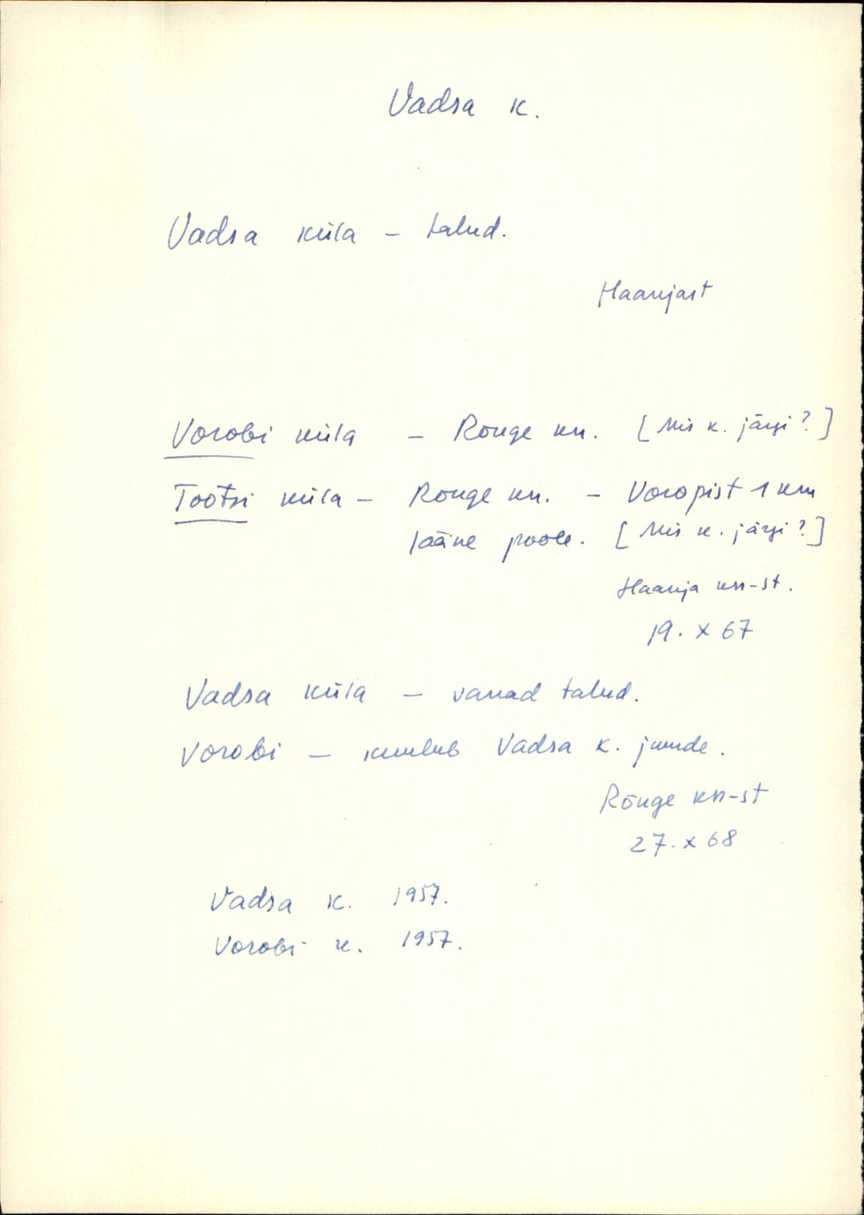 Vadsa k.
Vadsa küla – talud.
Haanjast
Vorobi küla – Rõuge kn. [Mis k. järgi?]
Tootsi küla – Rõuge kn. – Voropist 1 km
lääne poole. [Mis k. järgi?]
Haanja kn-st.
19. X 67
Vadsa küla – vanad talud.
Vorobi – kuulub Vadsa k. juurde.
Rõuge kn-st
27. X 68
Vadsa k. 1957.
Vorobi k. 1957.